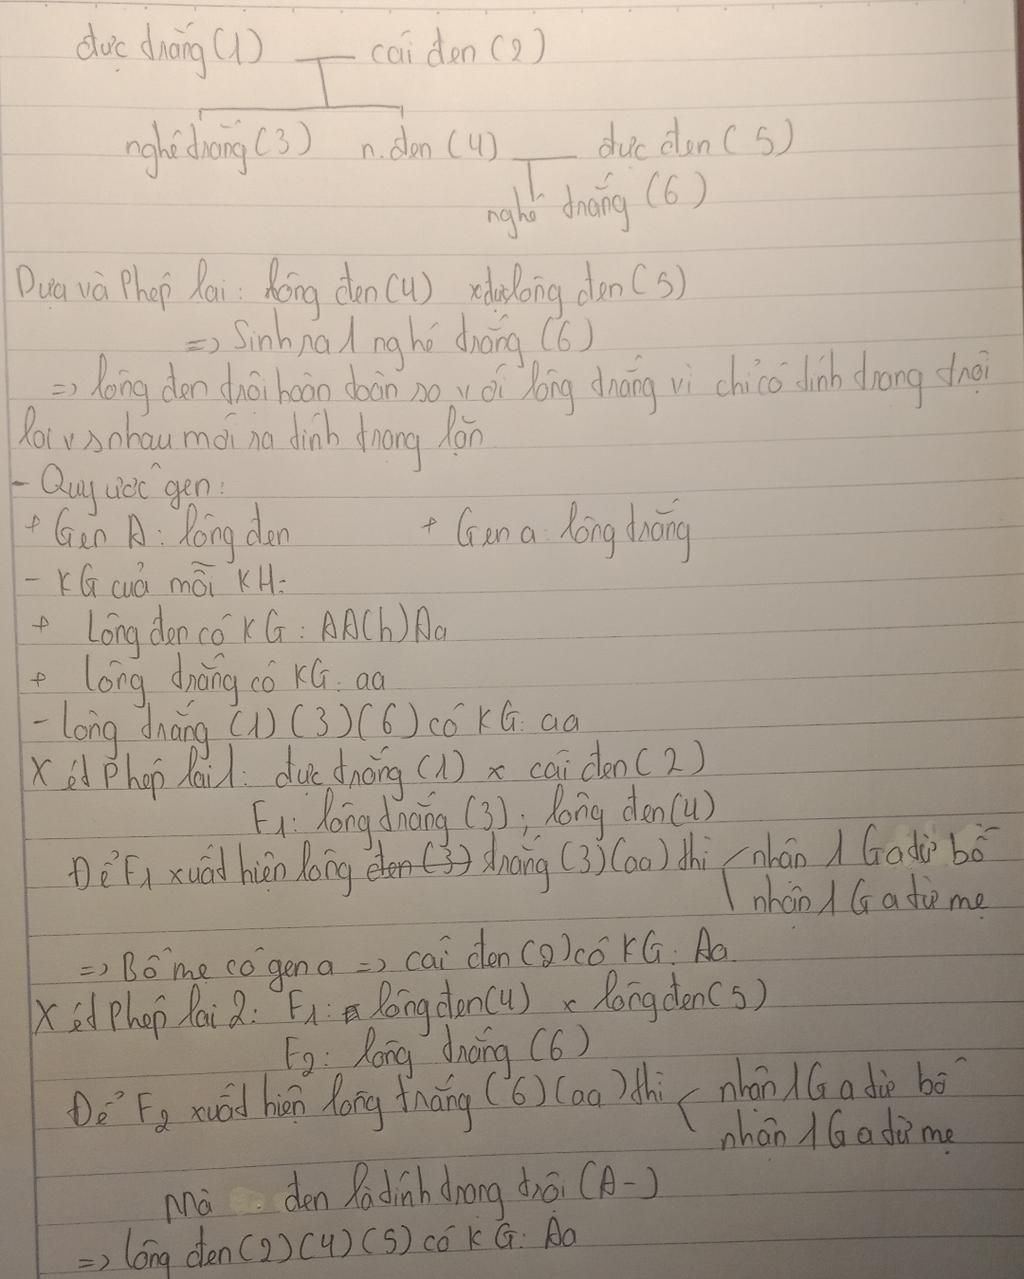 đực trắng (1) cái đen (2)
nghé trắng (3) n. đen (4) đực đen (5)
nghé trắng (6)
Dựa và Phép lai: lông đen (4) x đực lông đen (5)
=> Sinh ra 1 nghé trắng (6)
=> lông đen trội hoàn toàn so với lông trắng vì chỉ có tính trạng trội
lai vs nhau mới ra tính trạng lặn
- Quy ước gen:
+ Gen A: lông đen + Gen a: lông trắng
- KG của mỗi KH:
+ Lông đen có KG: AA(h)Aa
+ lông trắng có KG: aa
- Lông trắng (1) (3) (6) có KG: aa
Xét Phép lai 1: đực trắng (1) x cái đen (2)
F1: lông trắng (3); lông đen (4)
Để F1 xuất hiện lông đen (3) trắng (3) (aa) thì nhận 1 G a từ bố
nhận 1 G a từ mẹ
=> Bố mẹ có gen a => cái đen (2) có KG: Aa
Xét Phép lai 2: F1: lông đen (4) x lông đen (5)
F2: lông trắng (6)
Để F2 xuất hiện lông trắng (6) (aa) thì nhận 1 G a từ bố
nhận 1 G a từ mẹ
Mà đen là tính trạng trội (A-)
=> lông đen (2) (4) (5) có KG: Aa